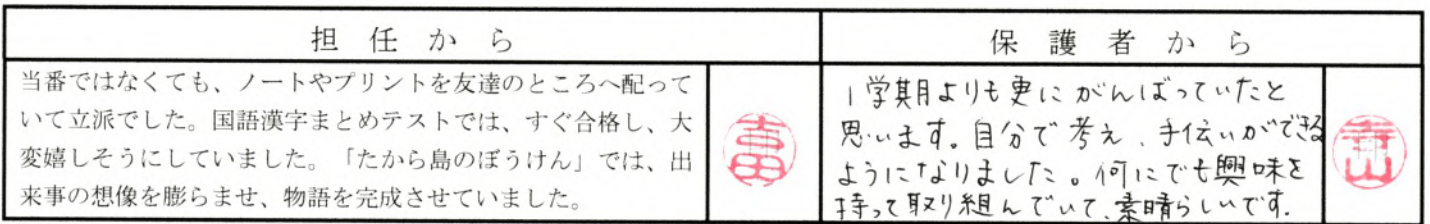 担任から
当番ではなくても、ノートやプリントを友達のところへ配って
いて立派でした。国語漢字まとめテストでは、すぐ合格し、大
変嬉しそうにしていました。「たから島のぼうけん」では、出
来事の想像を膨らませ、物語を完成させていました。
吉田
保護者から
1学期よりも更にがんばっていたと
思います。自分で考え、手伝いができる
ようになりました。何にでも興味を
持って取り組んでいて、素晴らしいです。